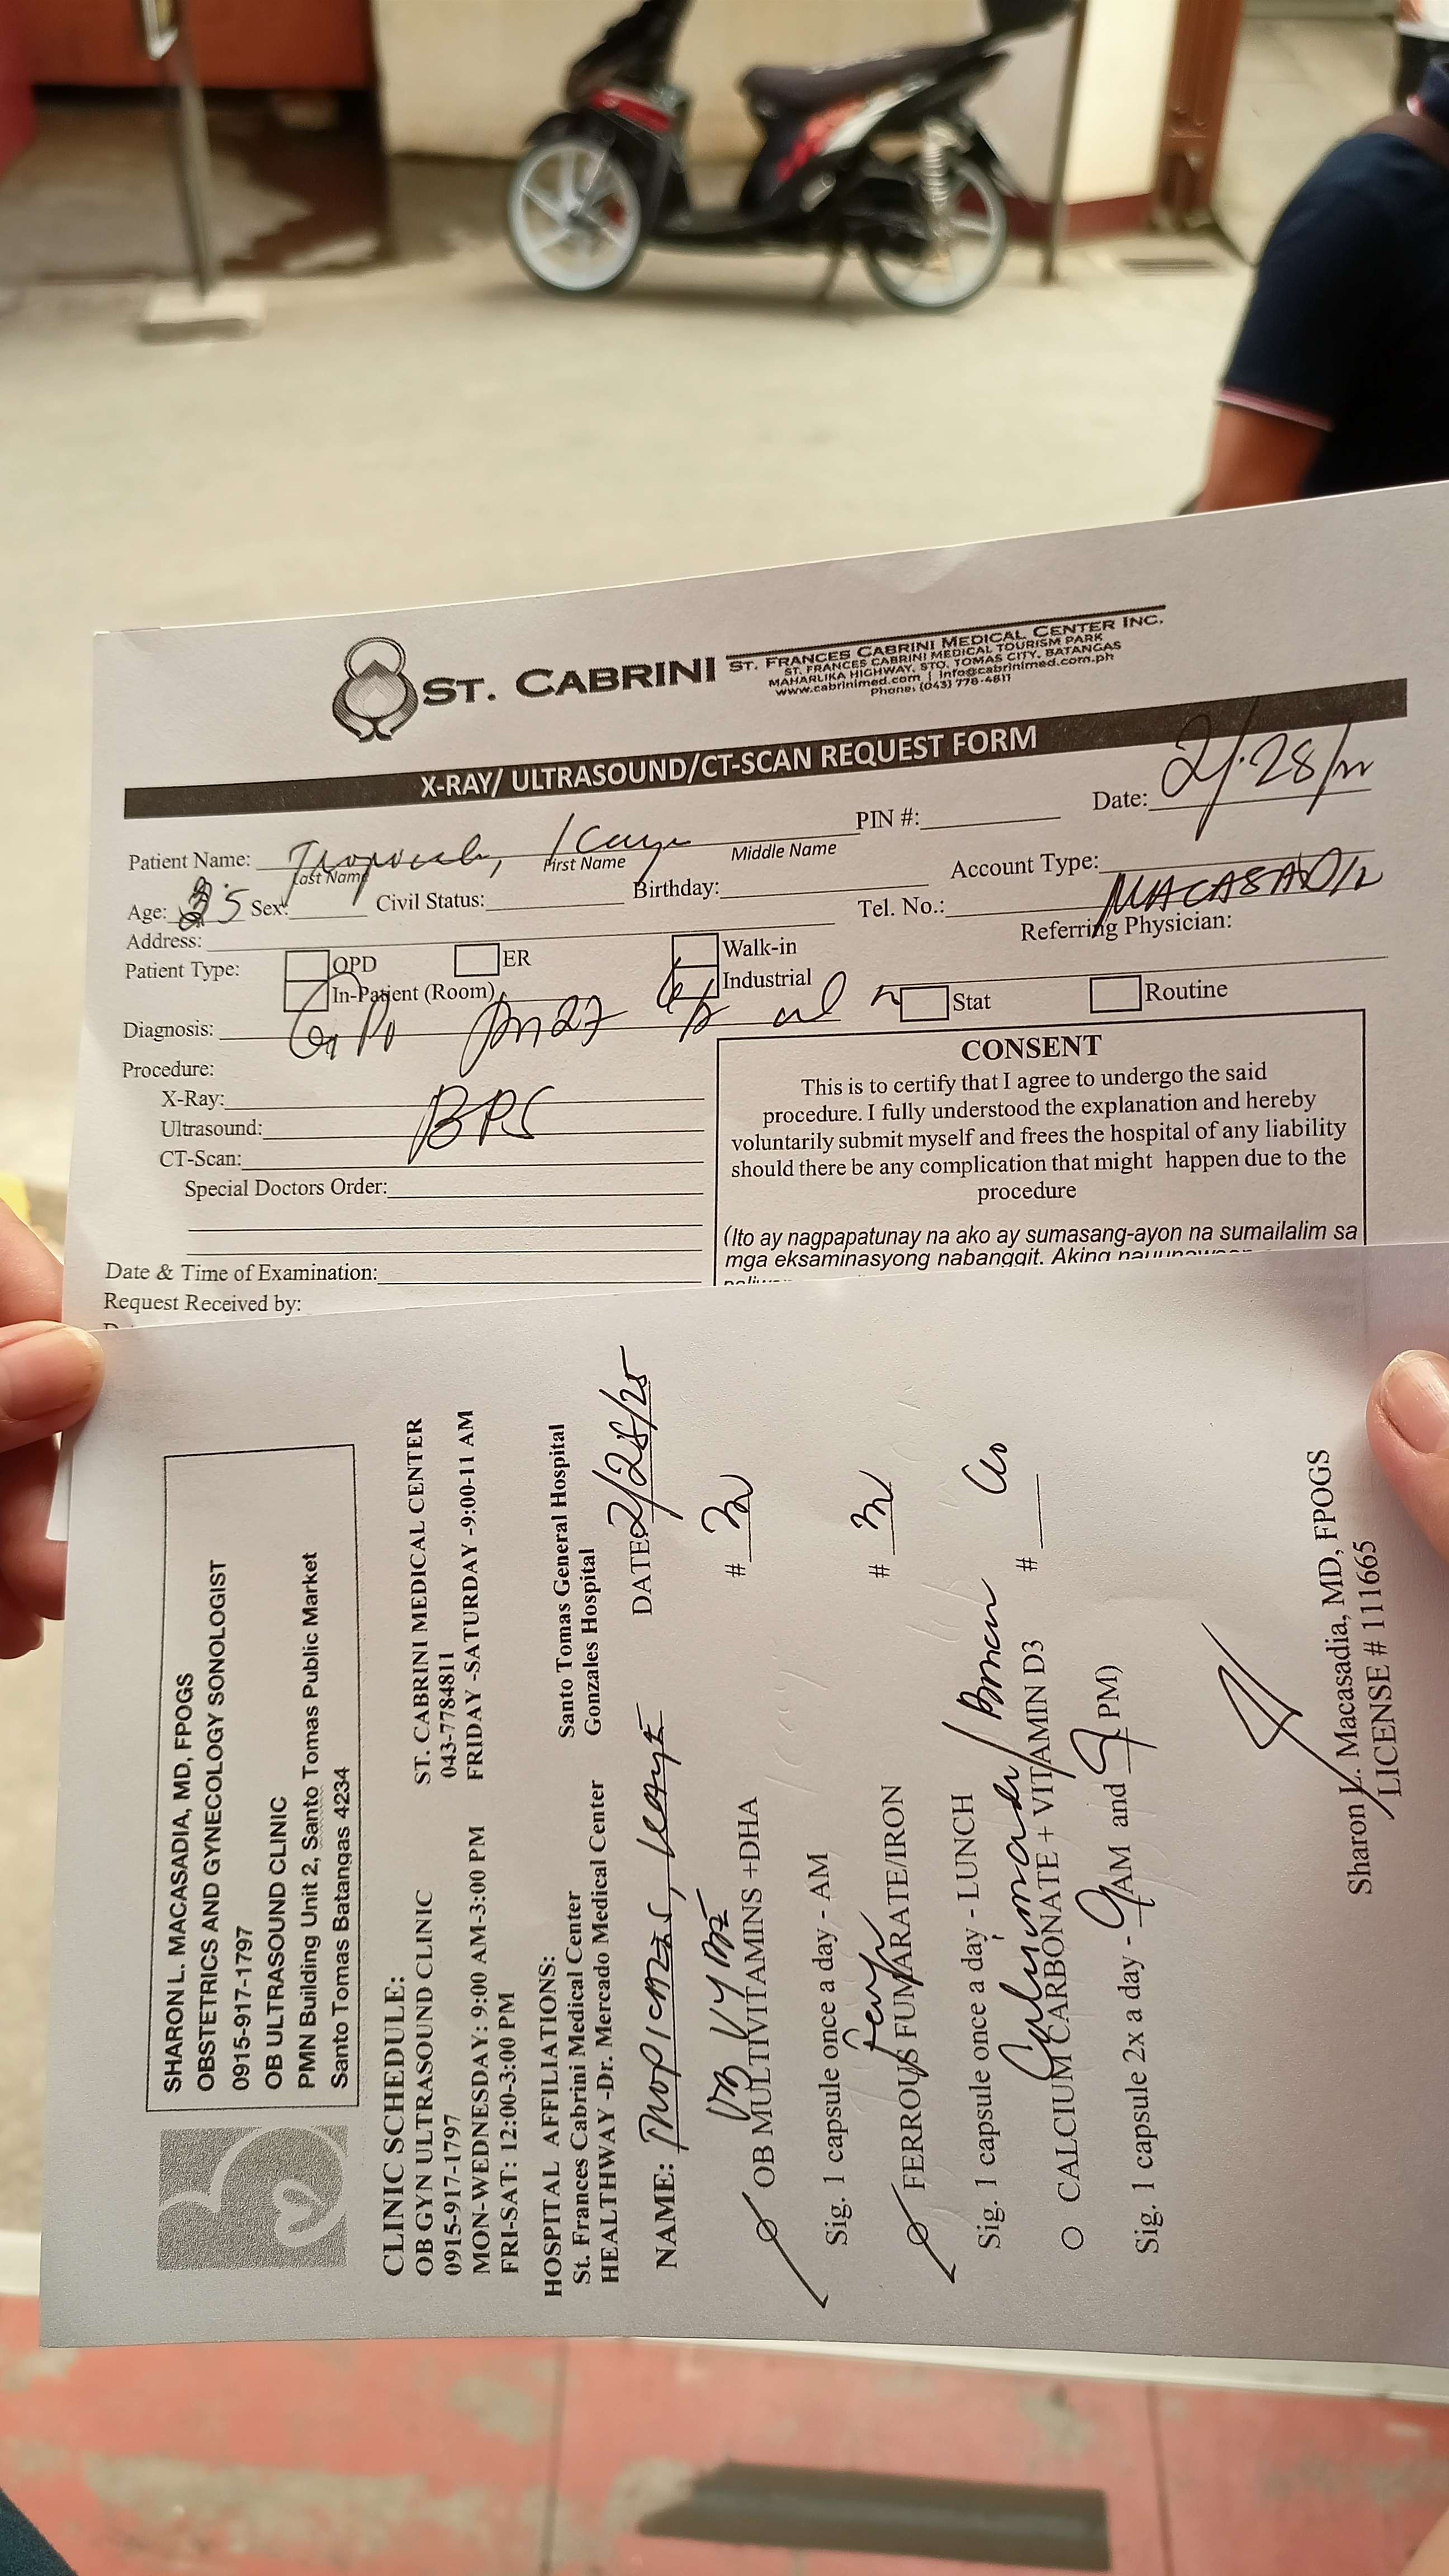 ST. CABRINI
ST. FRANCES CABRINI MEDICAL CENTER INC.
ST. FRANCES CABRINI MEDICAL TOURISM PARK
MAHARLIKA HIGHWAY, STO. TOMAS CITY, BATANGAS
www.cabrinimed.com | info@cabrinimed.com.ph
Phone: (043) 778-4811
X-RAY/ ULTRASOUND/CT-SCAN REQUEST FORM
PIN #: Date: 2/28/
Patient Name:
Last Name First Name Middle Name
Age: Sex: Civil Status: Birthday: Account Type:
Address: Tel. No.: MACASADIA
Referring Physician:
Patient Type: OPD ER Walk-in
In-Patient (Room) Industrial Stat Routine
Diagnosis:
Procedure:
X-Ray:
Ultrasound: BPS
CT-Scan:
Special Doctors Order:
Date & Time of Examination:
Request Received by:
CONSENT
This is to certify that I agree to undergo the said
procedure. I fully understood the explanation and hereby
voluntarily submit myself and frees the hospital of any liability
should there be any complication that might happen due to the
procedure
(Ito ay nagpapatunay na ako ay sumasang-ayon na sumailalim sa
mga eksaminasyong nabanggit. Aking
SHARON L. MACASADIA, MD, FPOGS
OBSTETRICS AND GYNECOLOGY SONOLOGIST
0915-917-1797
OB ULTRASOUND CLINIC
PMN Building Unit 2, Santo Tomas Public Market
Santo Tomas Batangas 4234
CLINIC SCHEDULE:
OB GYN ULTRASOUND CLINIC
0915-917-1797
MON-WEDNESDAY: 9:00 AM-3:00 PM
FRI-SAT: 12:00-3:00 PM
ST. CABRINI MEDICAL CENTER
043-7784811
FRIDAY -SATURDAY -9:00-11 AM
HOSPITAL AFFILIATIONS:
St. Frances Cabrini Medical Center
HEALTHWAY -Dr. Mercado Medical Center
Santo Tomas General Hospital
Gonzales Hospital
NAME: DATE 2/28/25
OB MULTIVITAMINS +DHA #
Sig. 1 capsule once a day - AM
FERROUS FUMARATE/IRON #
Sig. 1 capsule once a day - LUNCH
CALCIUM CARBONATE + VITAMIN D3 #
Sig. 1 capsule 2x a day - 9 AM and PM)
Sharon L. Macasadia, MD, FPOGS
LICENSE # 111665